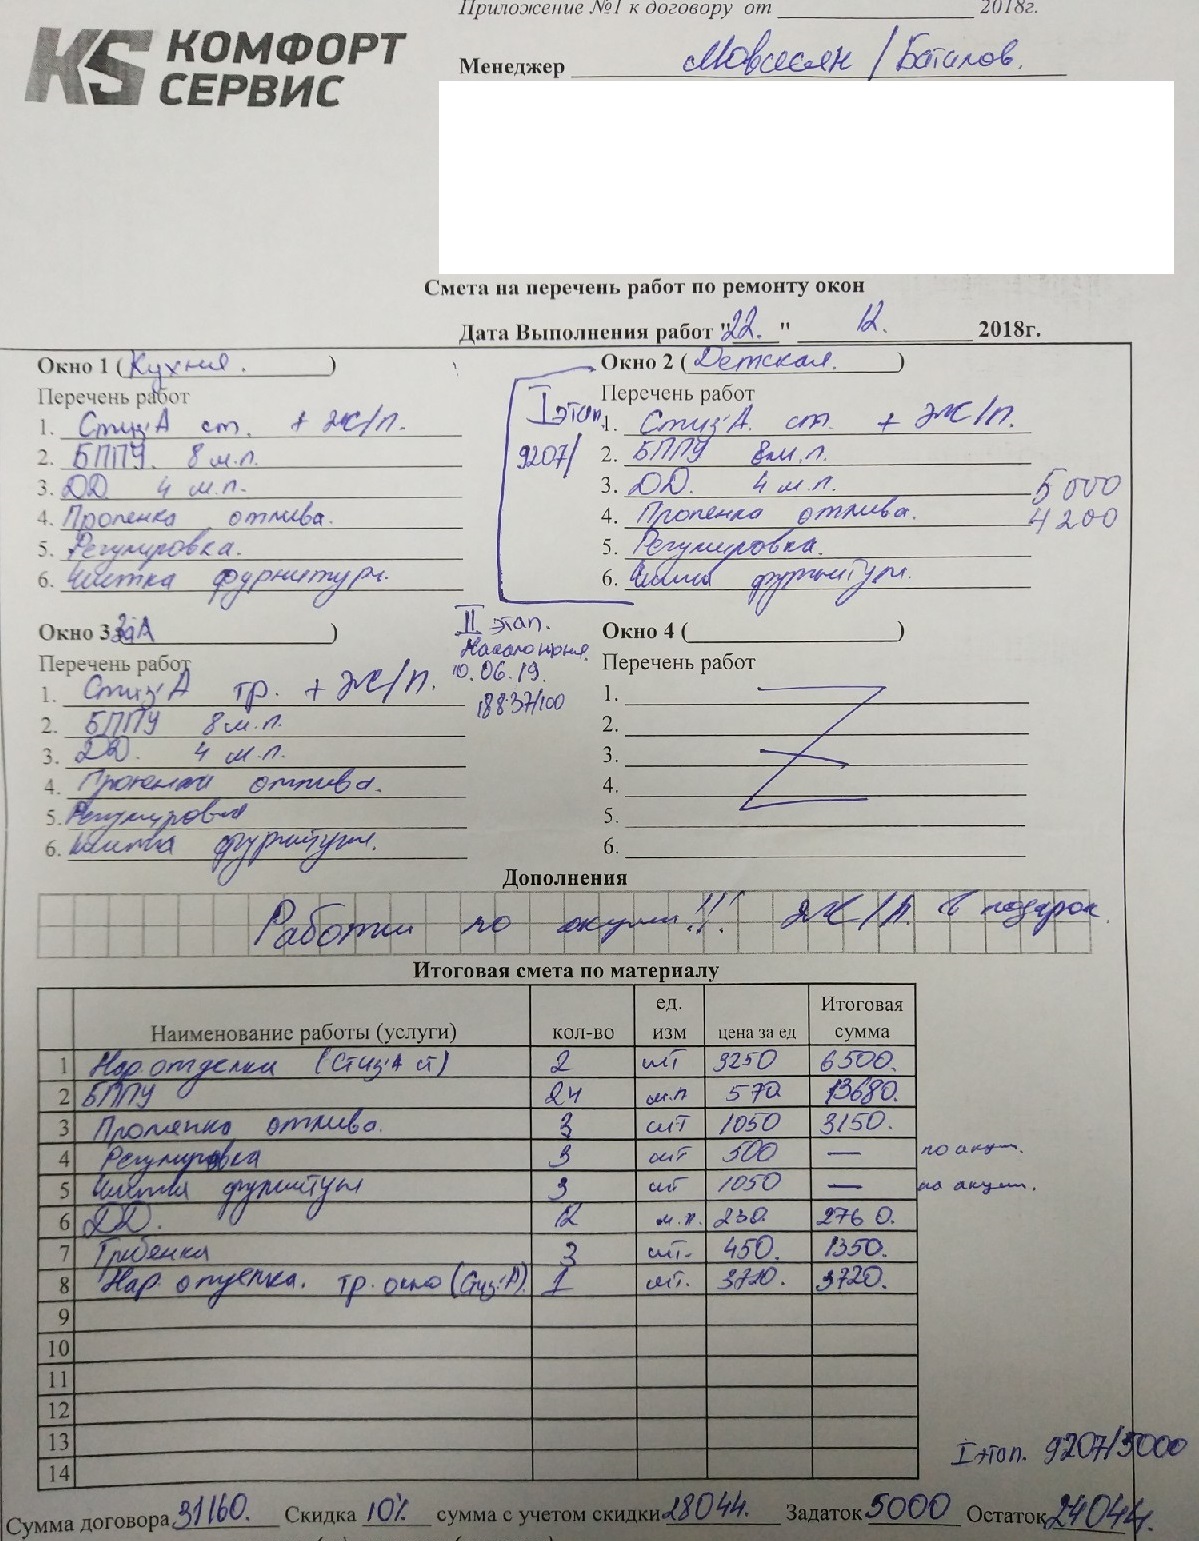 Приложение №1 к договору от 2018г.
KS КОМФОРТ СЕРВИС
Менеджер Мовсесян / Баталов.
Смета на перечень работ по ремонту окон
Дата Выполнения работ "22." 12. 2018г.
Окно 1 (Кухня.)
Перечень работ
1. Стиз.А ст. + Ж/п.
2. БППУ. 8 м.п.
3. ДД 4 м.п.
4. Пропенка отлива.
5. Регулировка.
6. Чистка фурнитуры.
I этап.
9207/
Окно 2 (Детская.)
Перечень работ
1. Стиз.А. ст. + Ж/п.
2. БППУ 8м.п.
3. ДД. 4 м.п.
4. Пропенка отлива.
5. Регулировка.
6. Чистка фурнитуры.
5000
4200
Окно 3
Перечень работ
1. Стиз.А тр. + Ж/п.
2. БППУ 8м.п.
3. ДД. 4 м.п.
4. Пропенка отлива.
5. Регулировка
6. Чистка фурнитуры.
II этап.
Начало июня.
10.06.19.
18837/100
Окно 4 ( )
Перечень работ
1.
2.
3.
4.
5.
6.
Дополнения
Работы по акции!!! Ж/п. в подарок
Итоговая смета по материалу
Наименование работы (услуги) кол-во ед. изм цена за ед Итоговая сумма
1 Нар.отделка (Стиз.А ст) 2 шт 3250 6500.
2 БППУ 24 м.п 570 13680.
3 Пропенка отлива. 3 шт 1050 3150.
4 Регулировка 3 шт 500 — по акции.
5 Чистка фурнитуры 3 шт 1050 — по акции.
6 ДД. 12 м.п. 230 2760.
7 Гребенка 3 шт. 450. 1350.
8 Нар отделка. тр.окно (Стиз.А) 1 шт. 3720. 3720.
9
10
11
12
13
14
I этап. 9207/5000
Сумма договора 31160. Скидка 10% сумма с учетом скидки 28044. Задаток 5000 Остаток 24044.